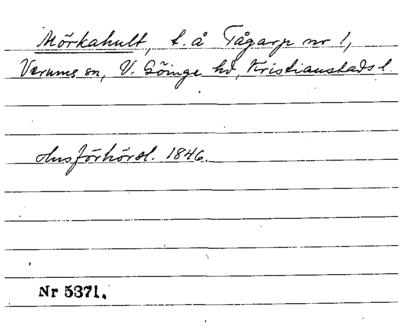 Mörkahult, t. å Tågarp nr 1,
Verums sn, V. Göinge hd, Kristianstads l.
Husförhörsl. 1846.
Nr 5371.